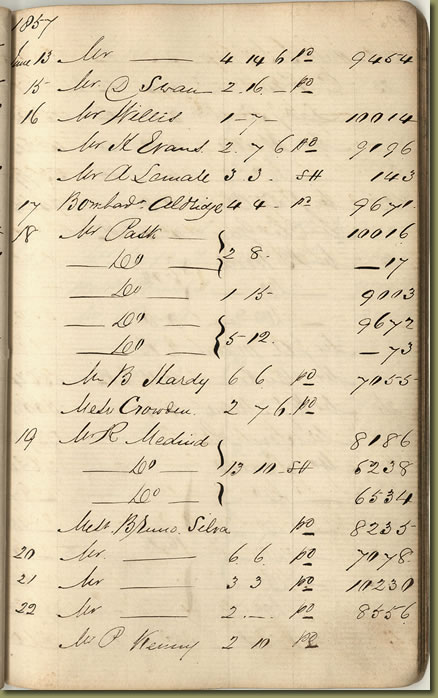 1857
June 13 Mr —— 4 14 6 pd 9454
15 Mr D Swan 2. 16. – pd
16 Mr Willis 1 – 7 – 10014
Mr H Evans 2. 7 6 pd 9196
Mr A 3. 3. SH 143
17 Bombadr. Aldridge 4 4 – pd 9671
18 Mr Pask 10016
—— Do —— 2 8. — 17
—— Do —— 1 15 – 9003
—— Do —— 9672
—— Do —— 5 – 12. — 73
Mr B Hardy 6 6 pd 7055
Messrs Crowden. 2 7 6. pd
19 Mr R 8186
—— Do —— 13 10 – SH 5238
—— Do —— 6534
Silva pd 8235
20 Mr. —— 6. 6. pd 7078
21 Mr —— 3 3 pd 10230
22 Mr —— 2. – . – pd 8556
Mr P Kenny 2 10 pd